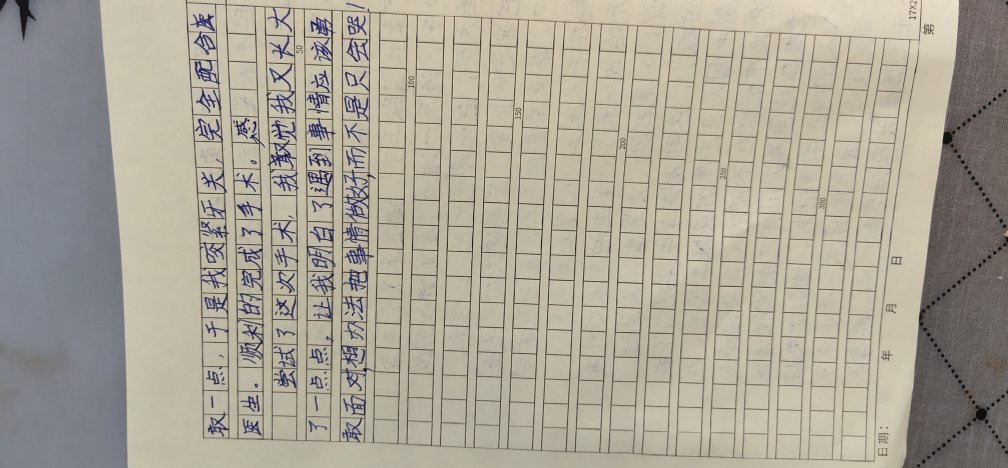 敢一点，于是我咬紧牙关，完全配合医
医生。顺利的完成了手术。
尝试了这次手术，我感觉我又长大
了一点点，让我明白了遇到事情应该勇
敢面对，想办法把事情做好，而不是只会哭！
50
100
150
200
250
300
日期： 年 月 日
第
17X2